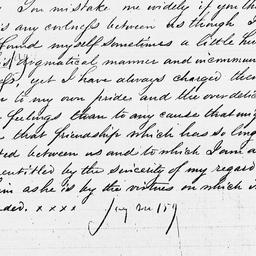 You mistake me widely if you th
is any coolness between us though I
found myself sometimes a little hu
is dogmatical manner and incommun
yet I have always charged them
to my own pride and the over delic
feelings than to any cause that mig
that friendship which has so long
ted between us and to which I am a
entitled by the sincerity of my regard
him as he is by the virtues on which i
ded. x x x x